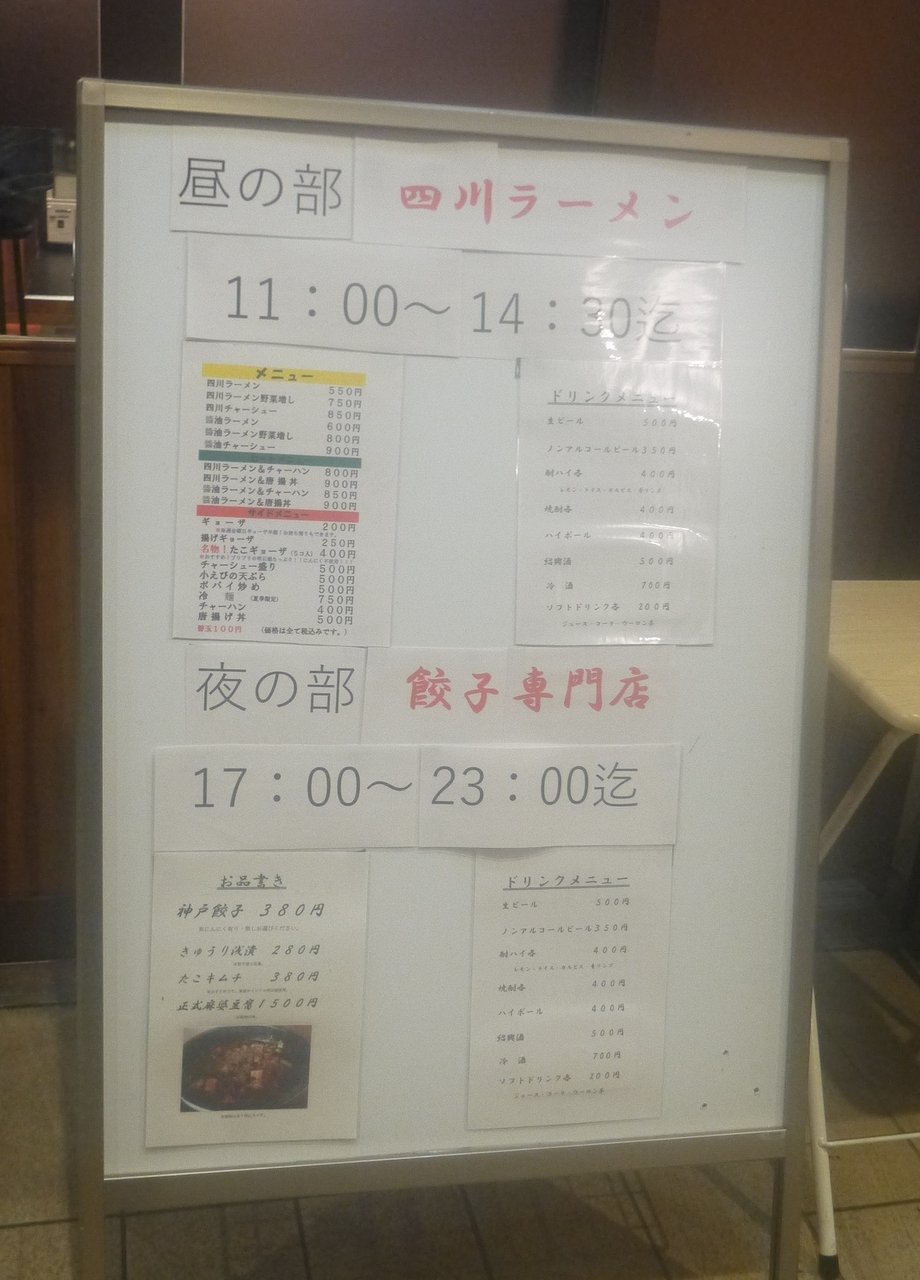 昼の部 四川ラーメン
11：00〜14：30迄
メニュー
四川ラーメン 550円
四川ラーメン野菜増し 750円
四川チャーシュー 850円
醤油ラーメン 600円
醤油ラーメン野菜増し 800円
醤油チャーシュー 900円
四川ラーメン&チャーハン 800円
四川ラーメン&唐揚丼 900円
醤油ラーメン&チャーハン 850円
醤油ラーメン&唐揚丼 900円
サイドメニュー
ギョーザ 200円
揚げギョーザ 250円
名物！たこギョーザ(5コ入) 400円
チャーシュー盛り 500円
小えびの天ぷら 500円
ポパイ炒め 500円
冷 麺 (夏季限定) 750円
チャーハン 400円
唐揚げ丼 500円
替玉100円 (価格は全て税込みです。)
ドリンクメニュー
生ビール 500円
ノンアルコールビール350円
酎ハイ各 400円
レモン・ライス・カルピス・青リンゴ
焼酎各 400円
ハイボール 400円
紹興酒 500円
冷 酒 700円
ソフトドリンク各 200円
ジュース・コーラ・ウーロン茶
夜の部 餃子専門店
17：00〜23：00迄
お品書き
神戸餃子 380円
きゅうり浅漬 280円
たこキムチ 380円
正式麻婆豆腐1500円
ドリンクメニュー
生ビール 500円
ノンアルコールビール350円
酎ハイ各 400円
レモン・ライス・カルピス・青リンゴ
焼酎各 400円
ハイボール 400円
紹興酒 500円
冷 酒 700円
ソフトドリンク各 200円
ジュース・コーラ・ウーロン茶